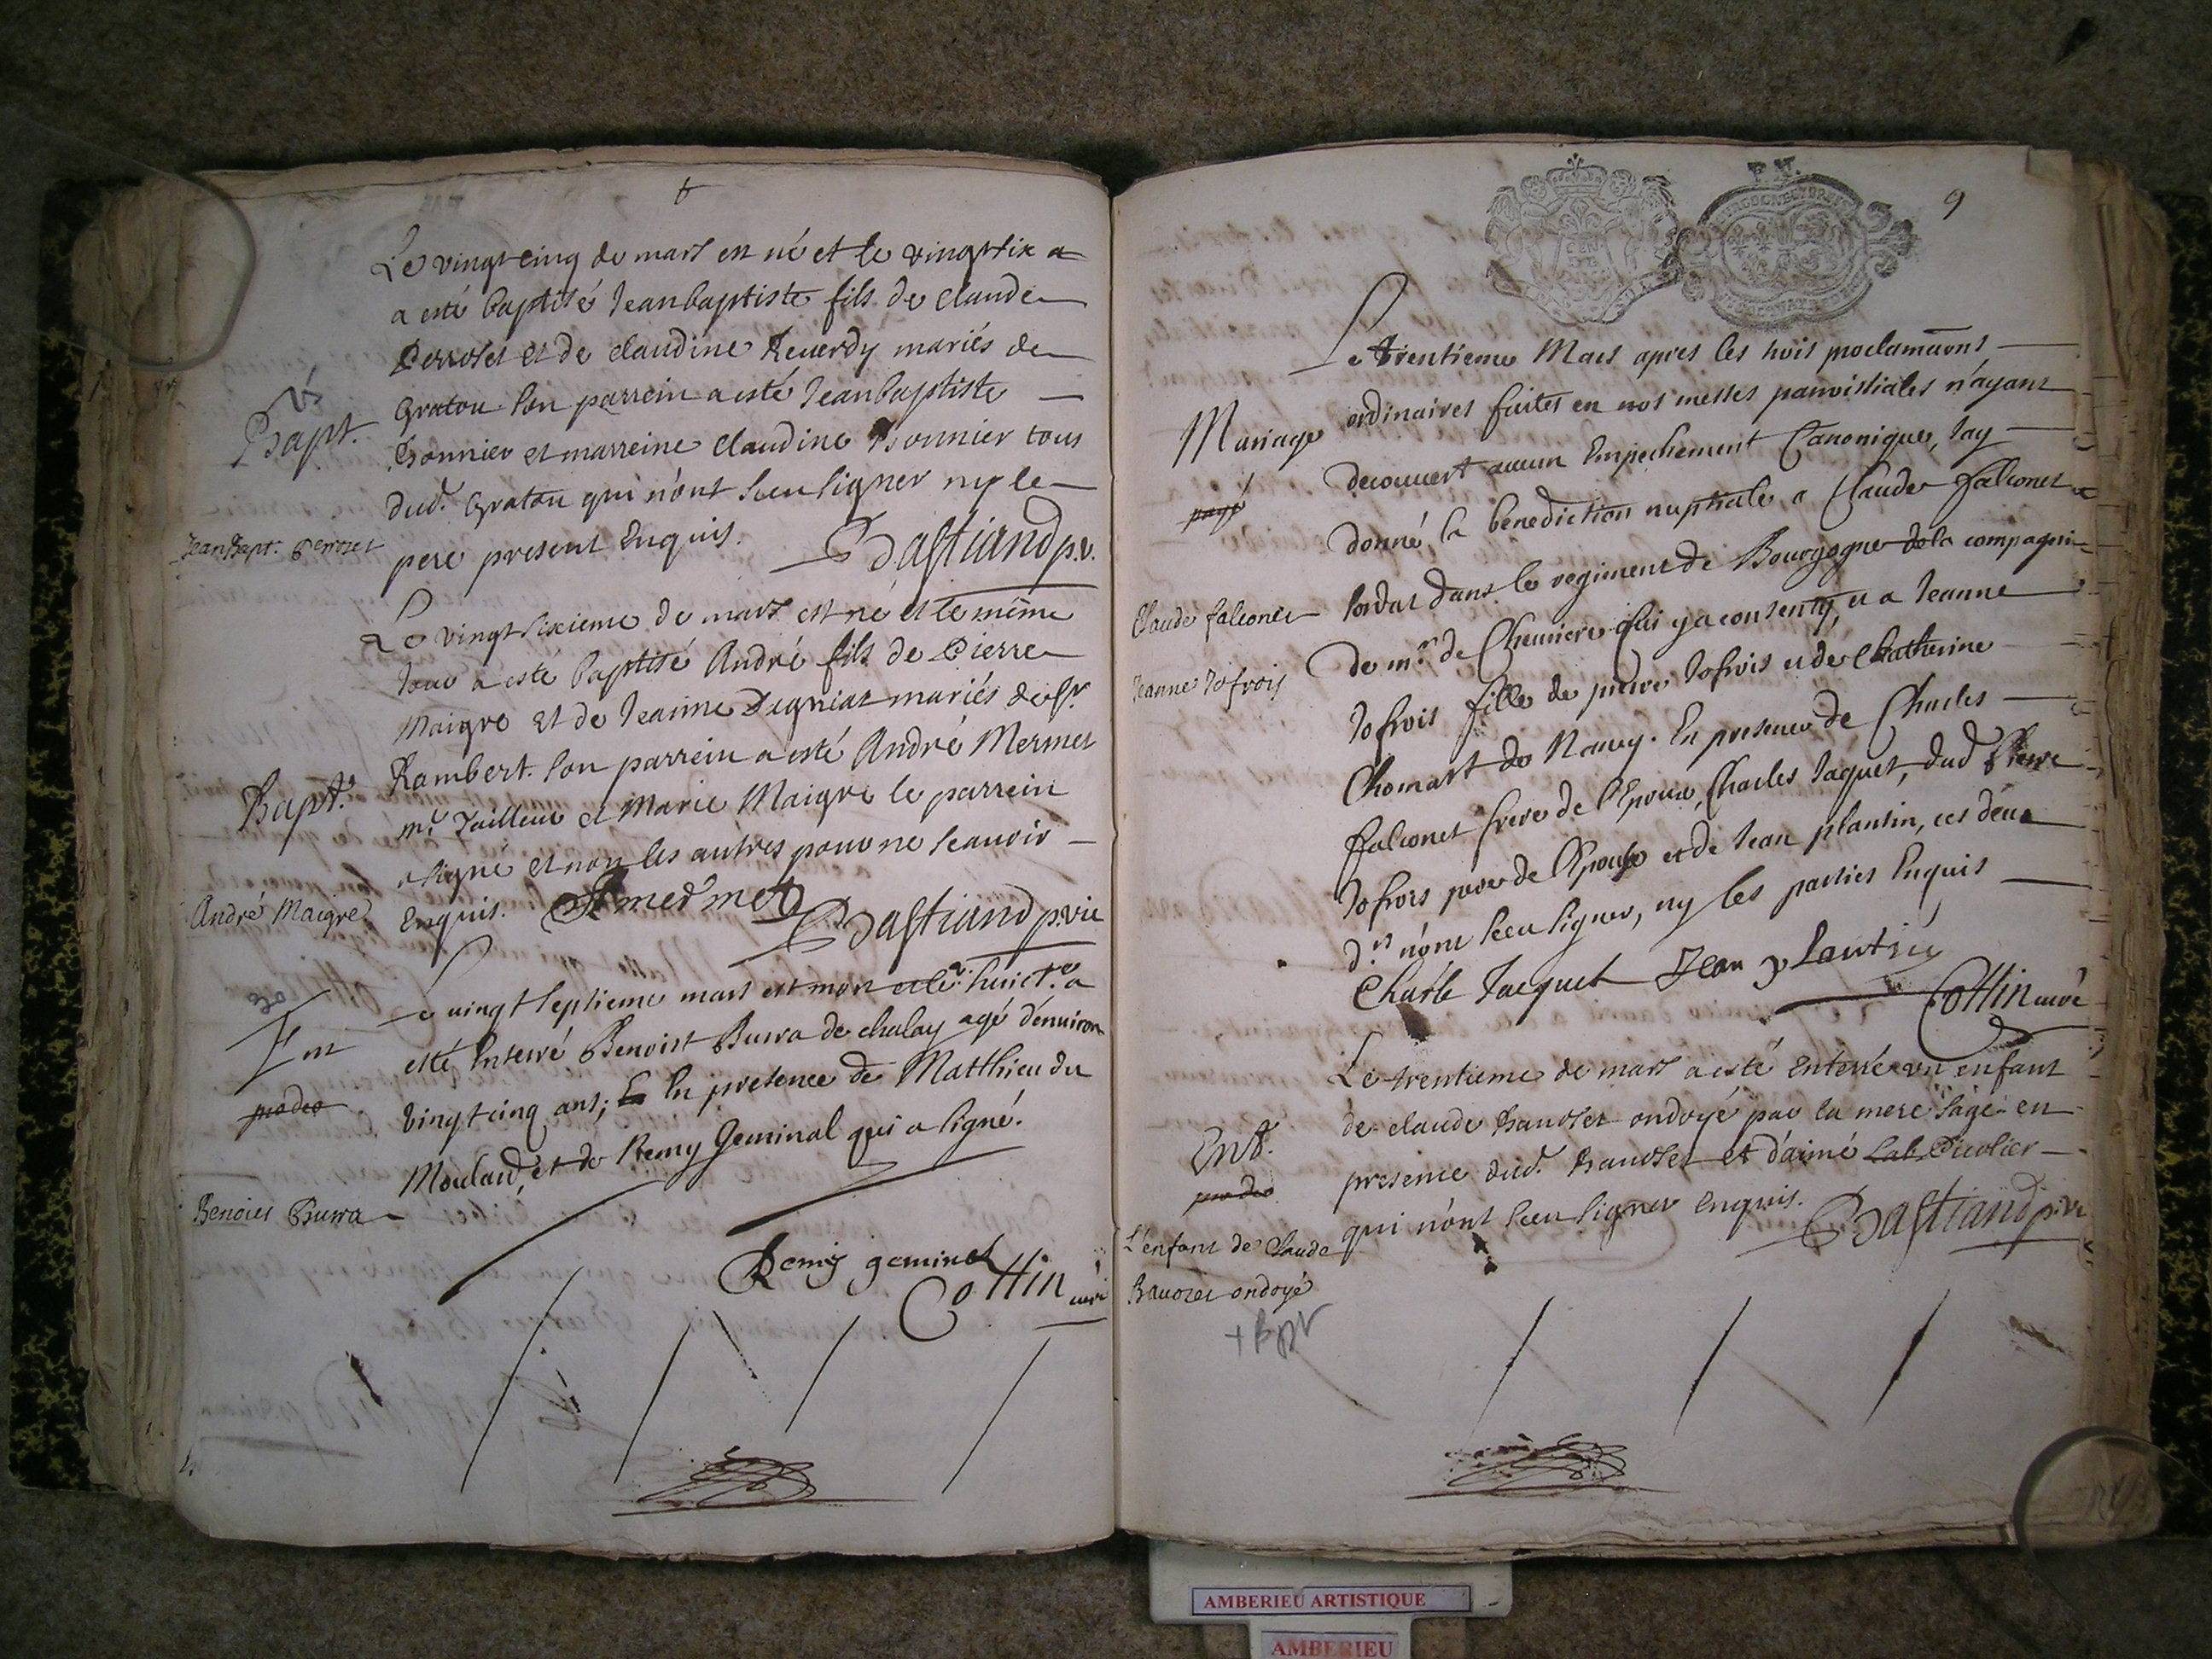 Le vingt cinq de mars est né et le vingtsix a
a esté baptisé Jean baptiste fils de claude
Perroset et de claudine Reuerdy mariés de
Gratou son parrein a esté Jean baptiste
Bonnier et marreine Claudine Bonnier tous
dud. Gratou qui n'ont sceu signer ny le
pere present Enquis. Bastiand p.v.
Bapt.
Jean Bapt. Perroset
Le vingt sixieme de mars est né et le même
Jour a esté baptisé André fils de Pierre
Maigre et de Jeanne Dagniat mariés de St.
Rambert. son parrein a esté André Mermet
mr. Tailleur et Marie Maigre le parrein
a signé et non les autres pour ne scauoir
Enquis. A mermet Bastiand p.vic
Bapt.
André Maigre
Le uingt septieme mars est mort et le huict.e a
esté Enterré Benoist Buwa de chaley agé d'enuiron
vingt cinq ans; En presence de Matthieu du
Moulard, et de Remy Geminal qui a signé.
30
Ent
pro deo
Benoist Buwa
Remy geminal
Cottin curé
9
Le trentieme Mars apres les trois proclamaons
ordinaires faites en nos messes parroissiales n'ayant
decouuert aucun Empechement Canonique, J'ay
donné la benediction nuptiale a Claude falconet
soldat dans le regiment de Bourgogne de la compagnie
de mr. de Cheuriere qui y a consenty, et a Jeanne
Jofrois fille de pierre Jofrois et de Chatherine
Chomart de Nancy. En presence de Charles
falconet frere de l'Epoux, Charles Jaquet, dud Pierre
Jofrois pere de l'Epouse et de Jean plantin, ces deux
d.rs n'ont sceu signer, ny les parties Enquis
Mariage
payé
Claude falconet
Jeanne Jofrois
Charle Jacquet Jean plantin
Cottin curé
Le trentieme de mars a esté Enterré un enfant
de claude Bauoset ondoyé par la mere sage en
presence dud. Bauoset et d'aimé Cuolier
qui n'ont sceu signer enquis. Bastiand p.vi
Ent.
pro deo
L'enfant de Claude
Bauozet ondoyé
AMBERIEU ARTISTIQUE
AMBERIEU